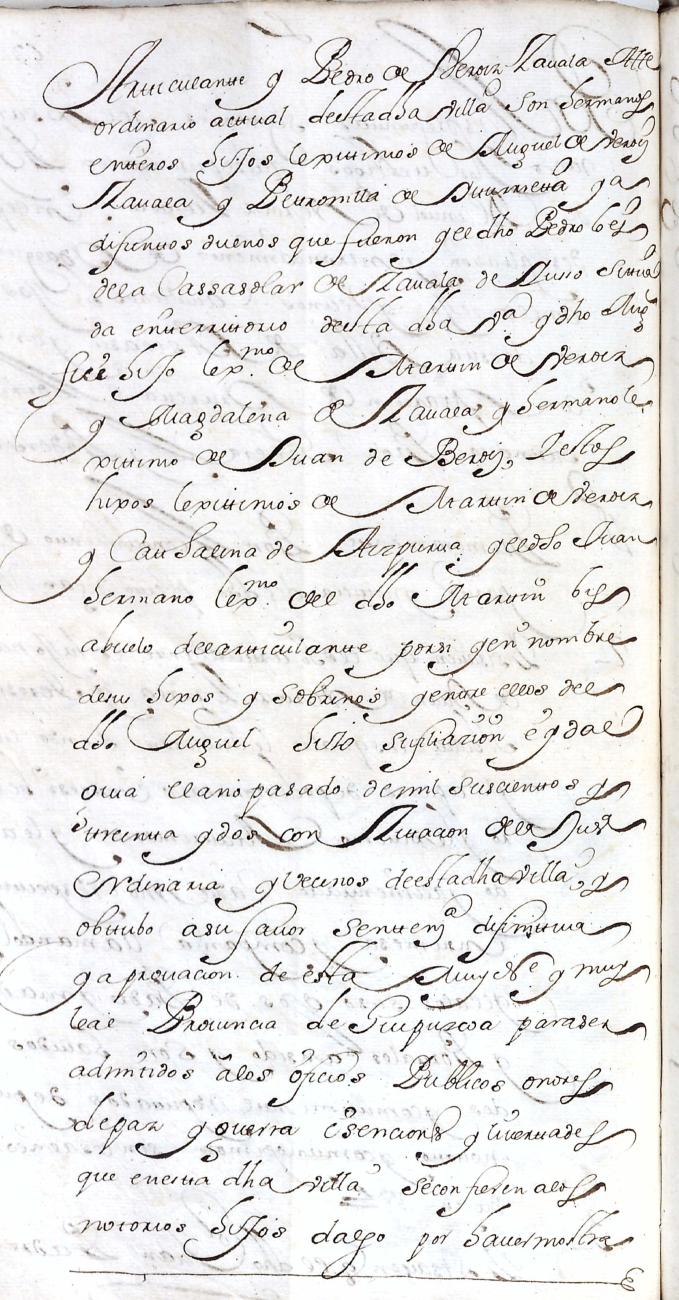 Articulante y Pedro de Veroiz Zavala Alle
ordinario actual desta dha villa son hermanos
enteros hijos lexittimos de Miguel de Veroiz
Zavala y Pettronilla de ya
difuntos dueños que fueron y el dho Pedro lo es
de la Cassa solar de Zavala de Suso sittua
da en territtorio desta dha va y dho Migl
fue hijo lexmo de Martin de Veroiz
y Magdalena de Zavala y hermano le
xittimo de Juan de Beroiz, Y estos
hixos lexittimos de Martin de Veroiz
y Cathalina de Aizpurua y el dho Juan
hermano lexmo del dho Martin bis
abuelo del artticulante por si y en nombre
de su hixos y sobrinos y entre ellos del
dho Miguel hisso su filiazion e ydal
guia el año pasado de mil siscientos y
ttreinta y dos con zittacion de la Justa
Ordinaria y Vecinos de esta dha villa, y
obttubo a su favor sentena difinittiva
y aprovacion de esta Muy Ne y muy
leal Provincia de Guipuzcoa para ser
admitidos a los oficios Publicos onores
de paz y guerra esenciones y livertades
que en esta dha villa se confieren a los
notorios hijos dalgo por haver mostra